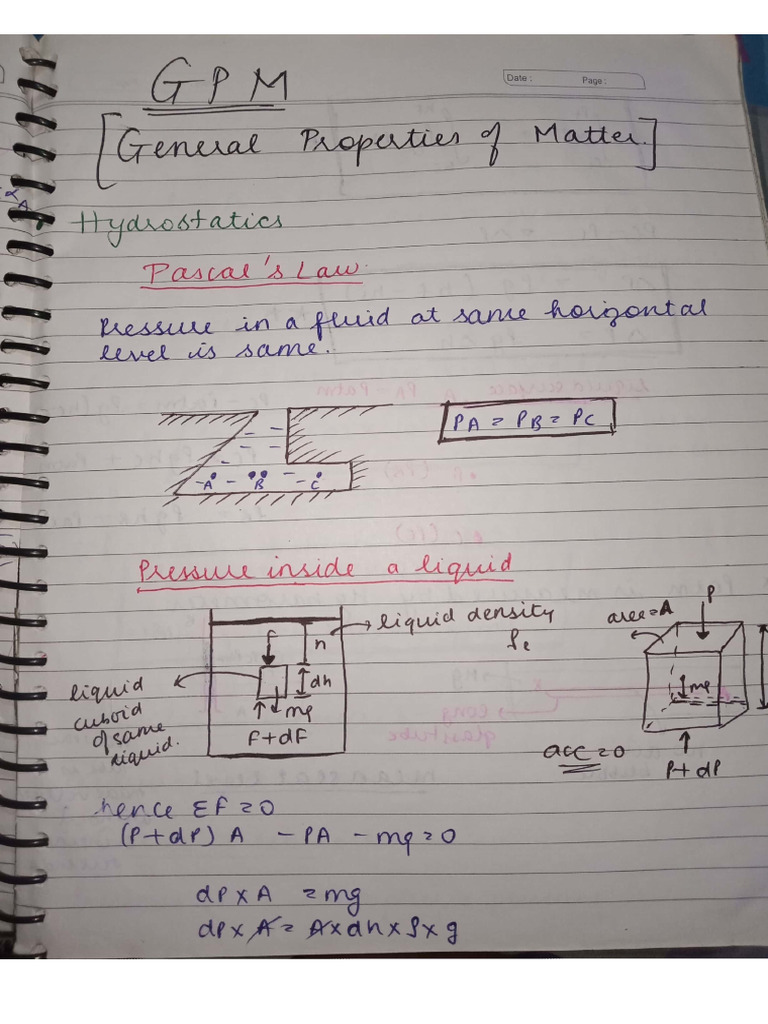 GPM
Date :
Page :
[General Properties of Matter.]
Hydrostatics
Pascal's Law.
Pressure in a fluid at same horizontal
level is same.
PA = PB = PC
A
B
C
Pressure inside a liquid
liquid density
ρℓ
F
h
dh
mg
F+dF
liquid
cuboid
of same
liquid.
area=A
P
mg
acc=0
P+dP
hence ΣF=0
(P+dP) A - PA - mg=0
dP×A = mg
dP×A = A×dh×ρ×g